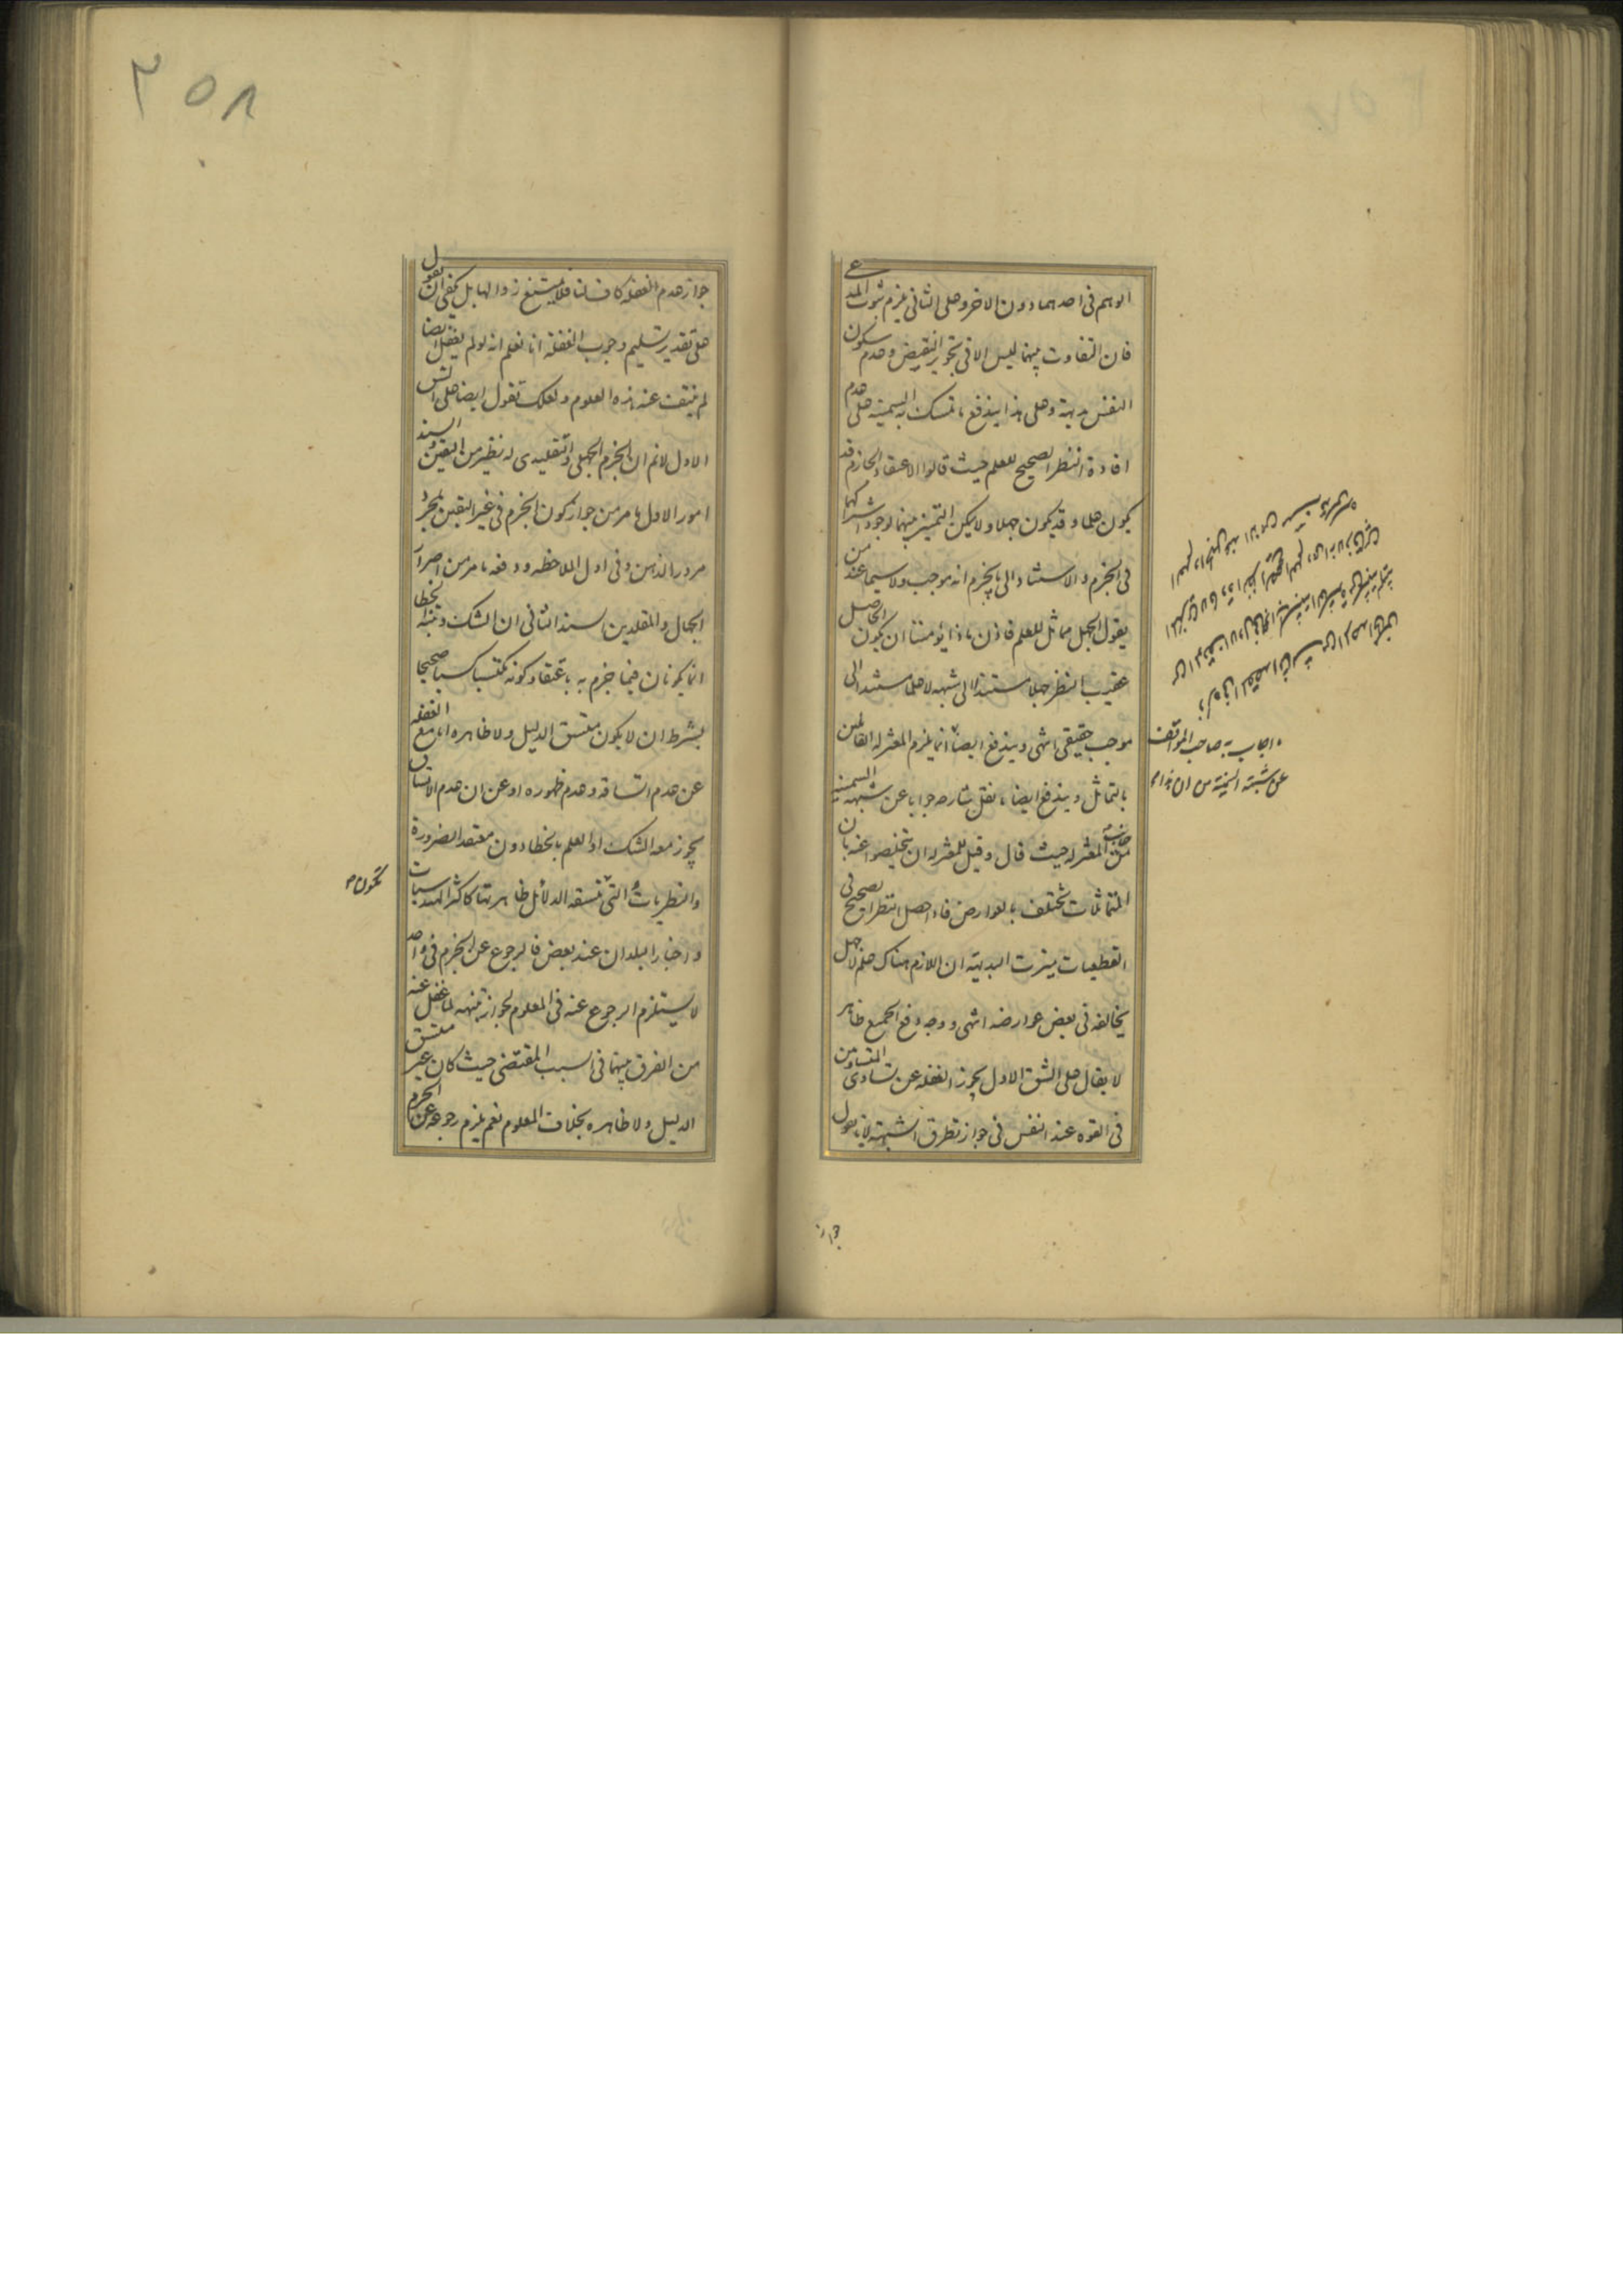 الوهم فى احدهما دون الاخر وعلى الثانى يلزم ثبوت المدعى
فان التفاوت بينهما ليس الا فى تجويز النقيض وعدم سكون
النفس بديهة وعلى هذا يندفع ما تمسك به السمنية على عدم
افادة النظر الصحيح للعلم حيث قالوا الاعتقاد الجازم قد
يكون علما وقد يكون جهلا ولا يمكن التمييز بينهما لوجود اشتراكهما
فى الجزم والاستناد الى ما يجزم انه موجب ولا سيما عند من
يقول الجهل مماثل للعلم فاذن ماذا يؤمننا ان يكون الحاصل
عقيب النظر جهلا مستندا الى شبهه لا علما مستندا الى
موجب حقيقى انتهى ويندفع ايضا انما يلزم المعتزله القائلين
بالتماثل ويندفع ايضا ما نقل شارحه جوابا عن شبهه السمنيه
من جانب المعتزله حيث قال وقيل للمعتزله ان يتخلصوا عنه بان
المتماثلات تختلف بالعوارض فاذا حصل النظر الصحيح فى
القطعيات ميزت البديهة ان اللازم هناك علم لا جهل
يخالفه فى بعض عوارضه انتهى ووجه دفع الجميع ظاهر
لا يقال على الشق الاول يجوز الغفله عن تساوى المتساويين
فى القوه عند النفس فى جواز تطرق الشبهة لانا نقول
اجاب به صاحب المواقف
عن شبهة السمنية من ان هذا
جواز
٣٥٨
جواز عدم الغفله كاف لنا فلا يمتنع زوالها بل يكفى ان نقول
على تقدير تسليم وجوب الغفلة انا نعلم انه لو لم يغفل ايضا
لم ينتف عنه هذه العلوم ولعلك تقول ايضا على الشق
الاول لانم ان الجزم الجهلى والتقليدى له نظير من اليقين والسند
امور الاول ما مر من جواز كون الجزم فى غير اليقين بمجرد
مرور الذهن وفى اول الملاحظه ودفعه ما مر من اصرار
الجهال والمقلدين سند الثانى ان الشك وتنبه الخطا
انما يكونان فيما جزم به باعتقاد كونه مكتسبا كسبا صحيحا
بشرط ان لا يكون متسق الدليل ولا ظاهره اما مع الغفله
عن عدم اتساقه وعدم ظهوره او عن ان عدم الاتساق
يجوز معه الشك او العلم بالخطا دون معتقد الضرورة
والنظريات التى متسقه الدلائل ظاهرتها كاكثر الهندسيات
واخبار البلدان عند بعض فالرجوع عن الجزم فى واحد
لا يستلزم الرجوع عنه فى المعلوم لجواز تنبهه لما غفل عنه
من الفرق بينهما فى السبب المقتضى حيث كان غير متسق
الدليل ولا ظاهره بخلاف المعلوم نعم يلزم رجوعه عن الجزم
تكون